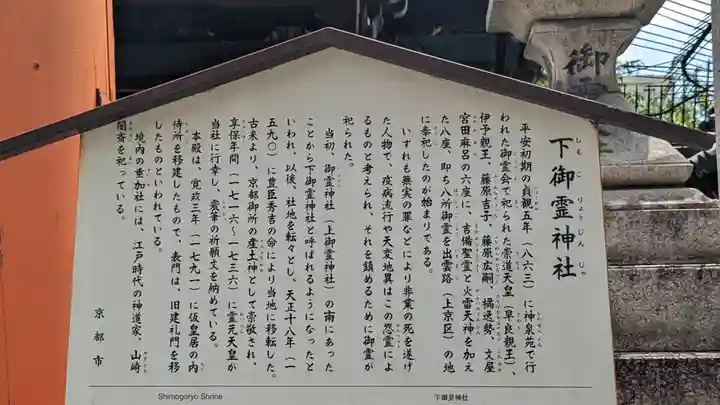 下御霊神社
しもごりょうじんじゃ
平安初期の貞観五年(八六三)に神泉苑で行
われた御霊会で祀られた崇道天皇(早良親王)、
伊予親王、藤原吉子、藤原広嗣、橘逸勢、文屋
宮田麻呂の六座に、吉備聖霊と火雷天神を加え
た八座、即ち八所御霊を出雲路(上京区)の地
に奉祀したのが始まりである。
いずれも無実の罪などにより非業の死を遂げ
た人物で、疫病流行や天変地異はこの怨霊によ
るものと考えられ、それを鎮めるために御霊が
祀られた。
当初、御霊神社(上御霊神社)の南にあった
ことから下御霊神社と呼ばれるようになったと
いわれ、以後、社地を転々とし、天正十八年(一
五九〇)に豊臣秀吉の命により当地に移転した。
古来より、京都御所の産土神として崇敬され、
享保年間(一七一六~一七三六)に霊元天皇が
当社に行幸し、震筆の祈願文を納めている。
本殿は、寛政三年(一七九一)に仮皇居の内
侍所を移建したもので、表門は、旧建礼門を移
したものといわれている。
境内の垂加社には、江戸時代の神道家、山崎
闇斎を祀っている。
京都市
Shimogoryo Shrine
下御霊神社
御